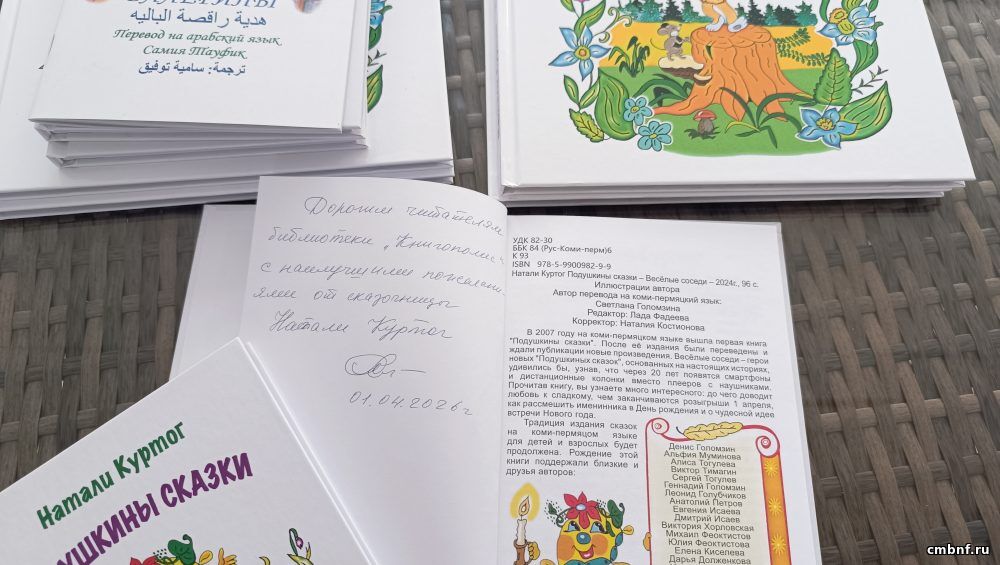 БАЛЕРИНЫ
هدية راقصة الباليه
Перевод на арабский язык
Самия Тауфик
ترجمة: سامية توفيق
Дорогим читателям
библиотеки „Книгополис"
с наилучшими пожелани-
ями от сказочницы
Натали Куртог
01.04.2026г
УДК 82-30
ББК 84 (Рус-Коми-перм)6
К 93
ISBN 978-5-9900982-9-9
Натали Куртог Подушкины сказки – Весёлые соседи – 2024г., 96 с.
Иллюстрации автора
Автор перевода на коми-пермяцкий язык:
Светлана Голомзина
Редактор: Лада Фадеева
Корректор: Наталия Костионова
В 2007 году на коми-пермяцком языке вышла первая книга
"Подушкины сказки". После её издания были переведены и
ждали публикации новые произведения. Весёлые соседи – герои
новых "Подушкиных сказок", основанных на настоящих историях,
удивились бы, узнав, что через 20 лет появятся смартфоны
и дистанционные колонки вместо плееров с наушниками.
Прочитав книгу, вы узнаете много интересного: до чего доводит
любовь к сладкому, чем заканчиваются розыгрыши 1 апреля,
как рассмешить именинника в День рождения и о чудесной идее
встречи Нового года.
Традиция издания сказок
на коми-пермяцом языке
для детей и взрослых будет
продолжена. Рождение этой
книги поддержали близкие и
друзья автора:
Денис Голомзин
Альфия Муминова
Алиса Тогулева
Виктор Тимагин
Сергей Тогулев
Геннадий Голомзин
Леонид Голубчиков
Анатолий Петров
Евгения Исаева
Дмитрий Исаев
Виктория Хорловская
Михаил Феоктистов
Юлия Феоктистова
Елена Киселева
Дарья Долженкова
Натали Куртог
УШКИНЫ СКАЗКИ
cmbnf.ru